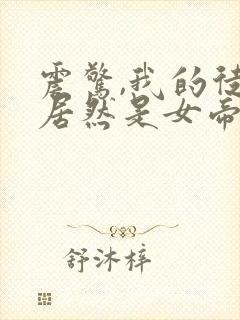 震惊,我的徒
居然是女帝
舒沐梓